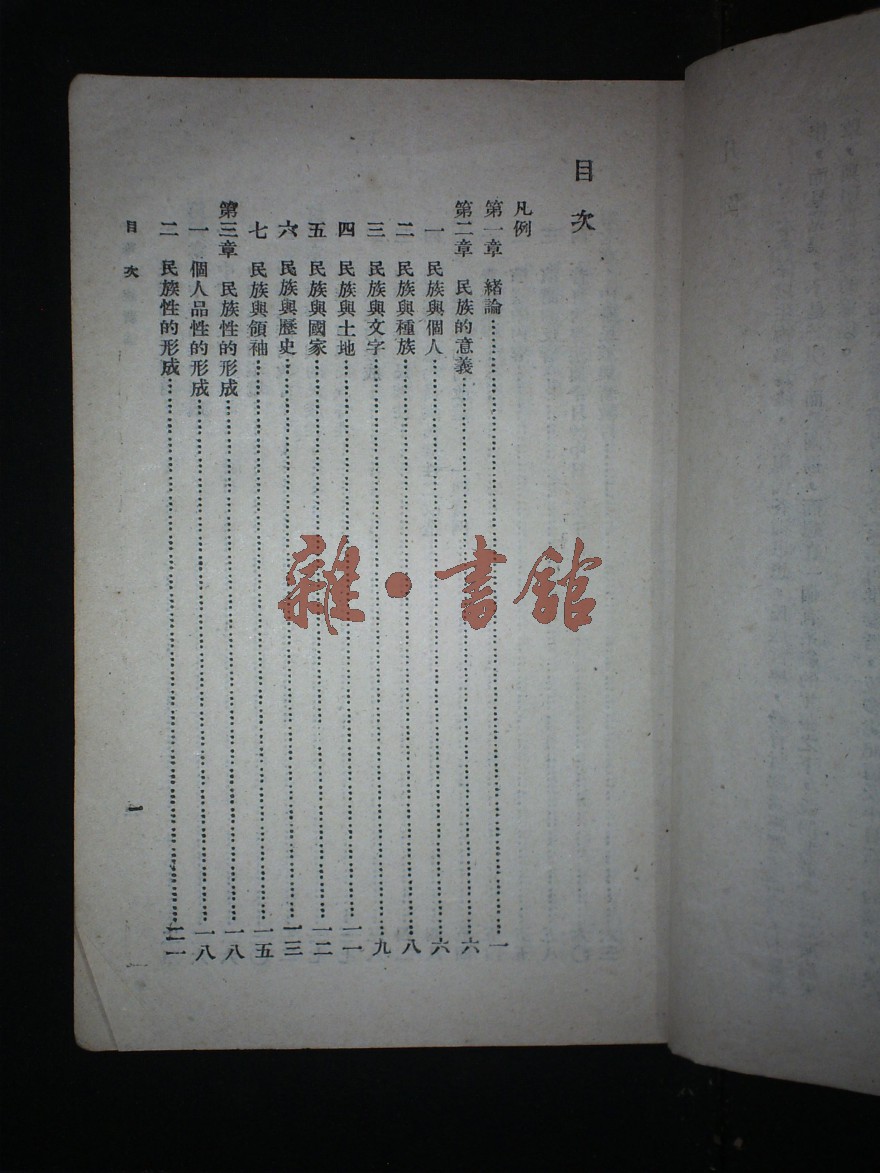 目次
凡例
第一章 緒論……一
第二章 民族的意義……六
一 民族與個人……六
二 民族與種族……八
三 民族與文字……九
四 民族與土地……一一
五 民族與國家……一二
六 民族與歷史……一三
七 民族與領袖……一五
第三章 民族性的形成……一八
一 個人品性的形成……一八
二 民族性的形成……二一
目次
一
雜·書館